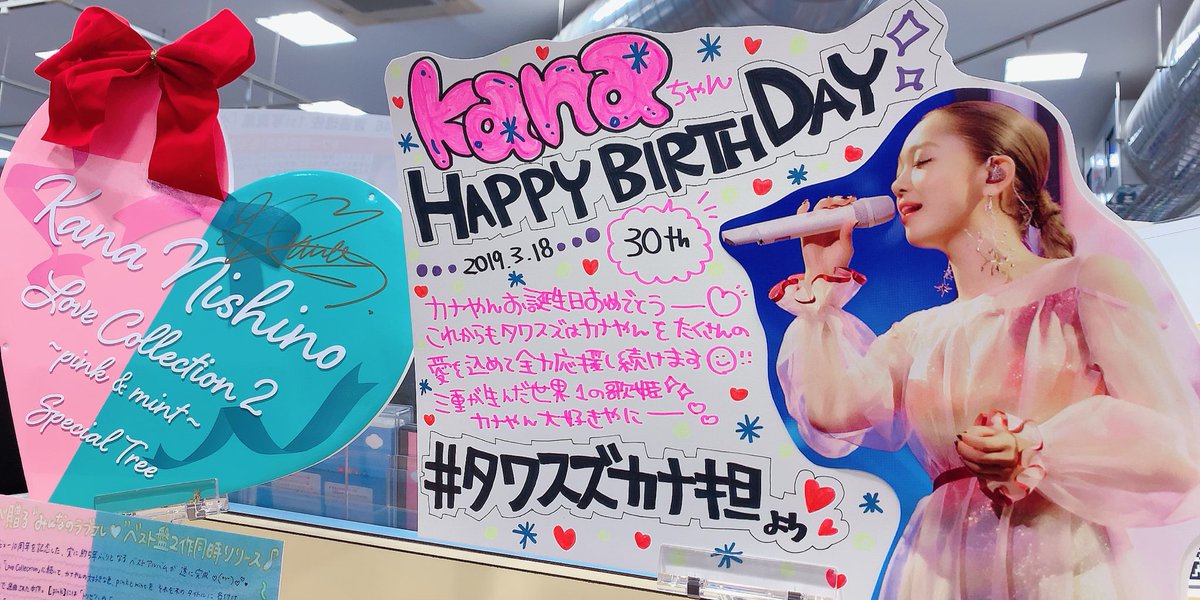 Kana Nishino
Love Collection 2
~pink & mint~
Special Tree
kanaちゃん
HAPPY BIRTHDAY
2019.3.18
30th
カナやんお誕生日おめでとうー
これからもタワスズはカナやんをたくさんの
愛を込めて全力応援し続けます
三重が生んだ世界1の歌姫
カナやん大好きやにー
#タワスズカナ担より
贈る"みんなのラブコレ♥"ベスト盤2作同時リリース♪